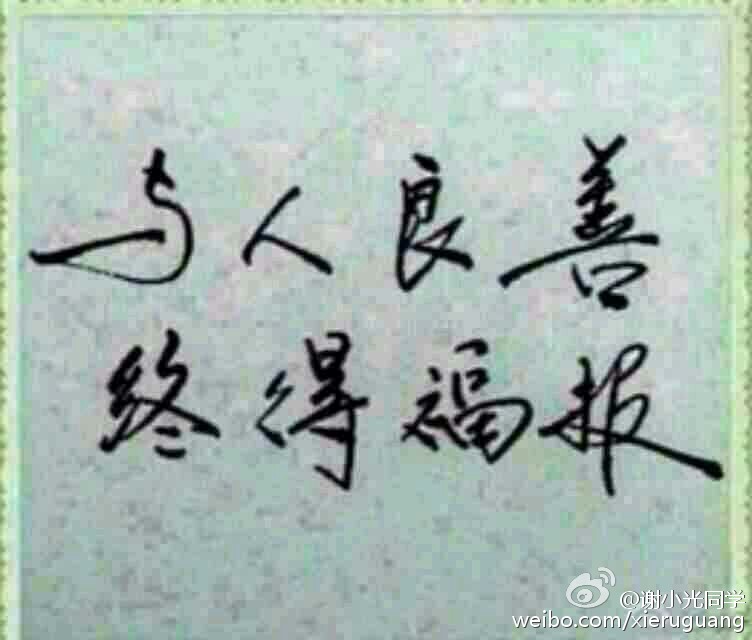 与人良善
终得福报
@谢小光同学
weibo.com/xieruguang